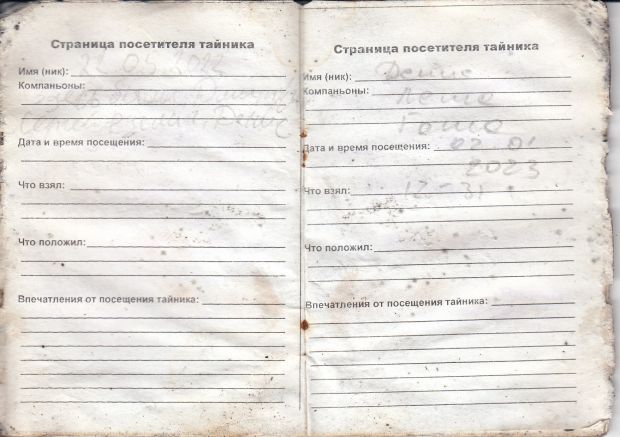 Страница посетителя тайника
Имя (ник): 22 05 2022
Компаньоны:
здесь были
Дата и время посещения:
Что взял:
Что положил:
Впечатления от посещения тайника:
Страница посетителя тайника
Имя (ник): Денис
Компаньоны: Леша
Гоша
Дата и время посещения: 02 01
2023
Что взял: 12-31
Что положил:
Впечатления от посещения тайника: